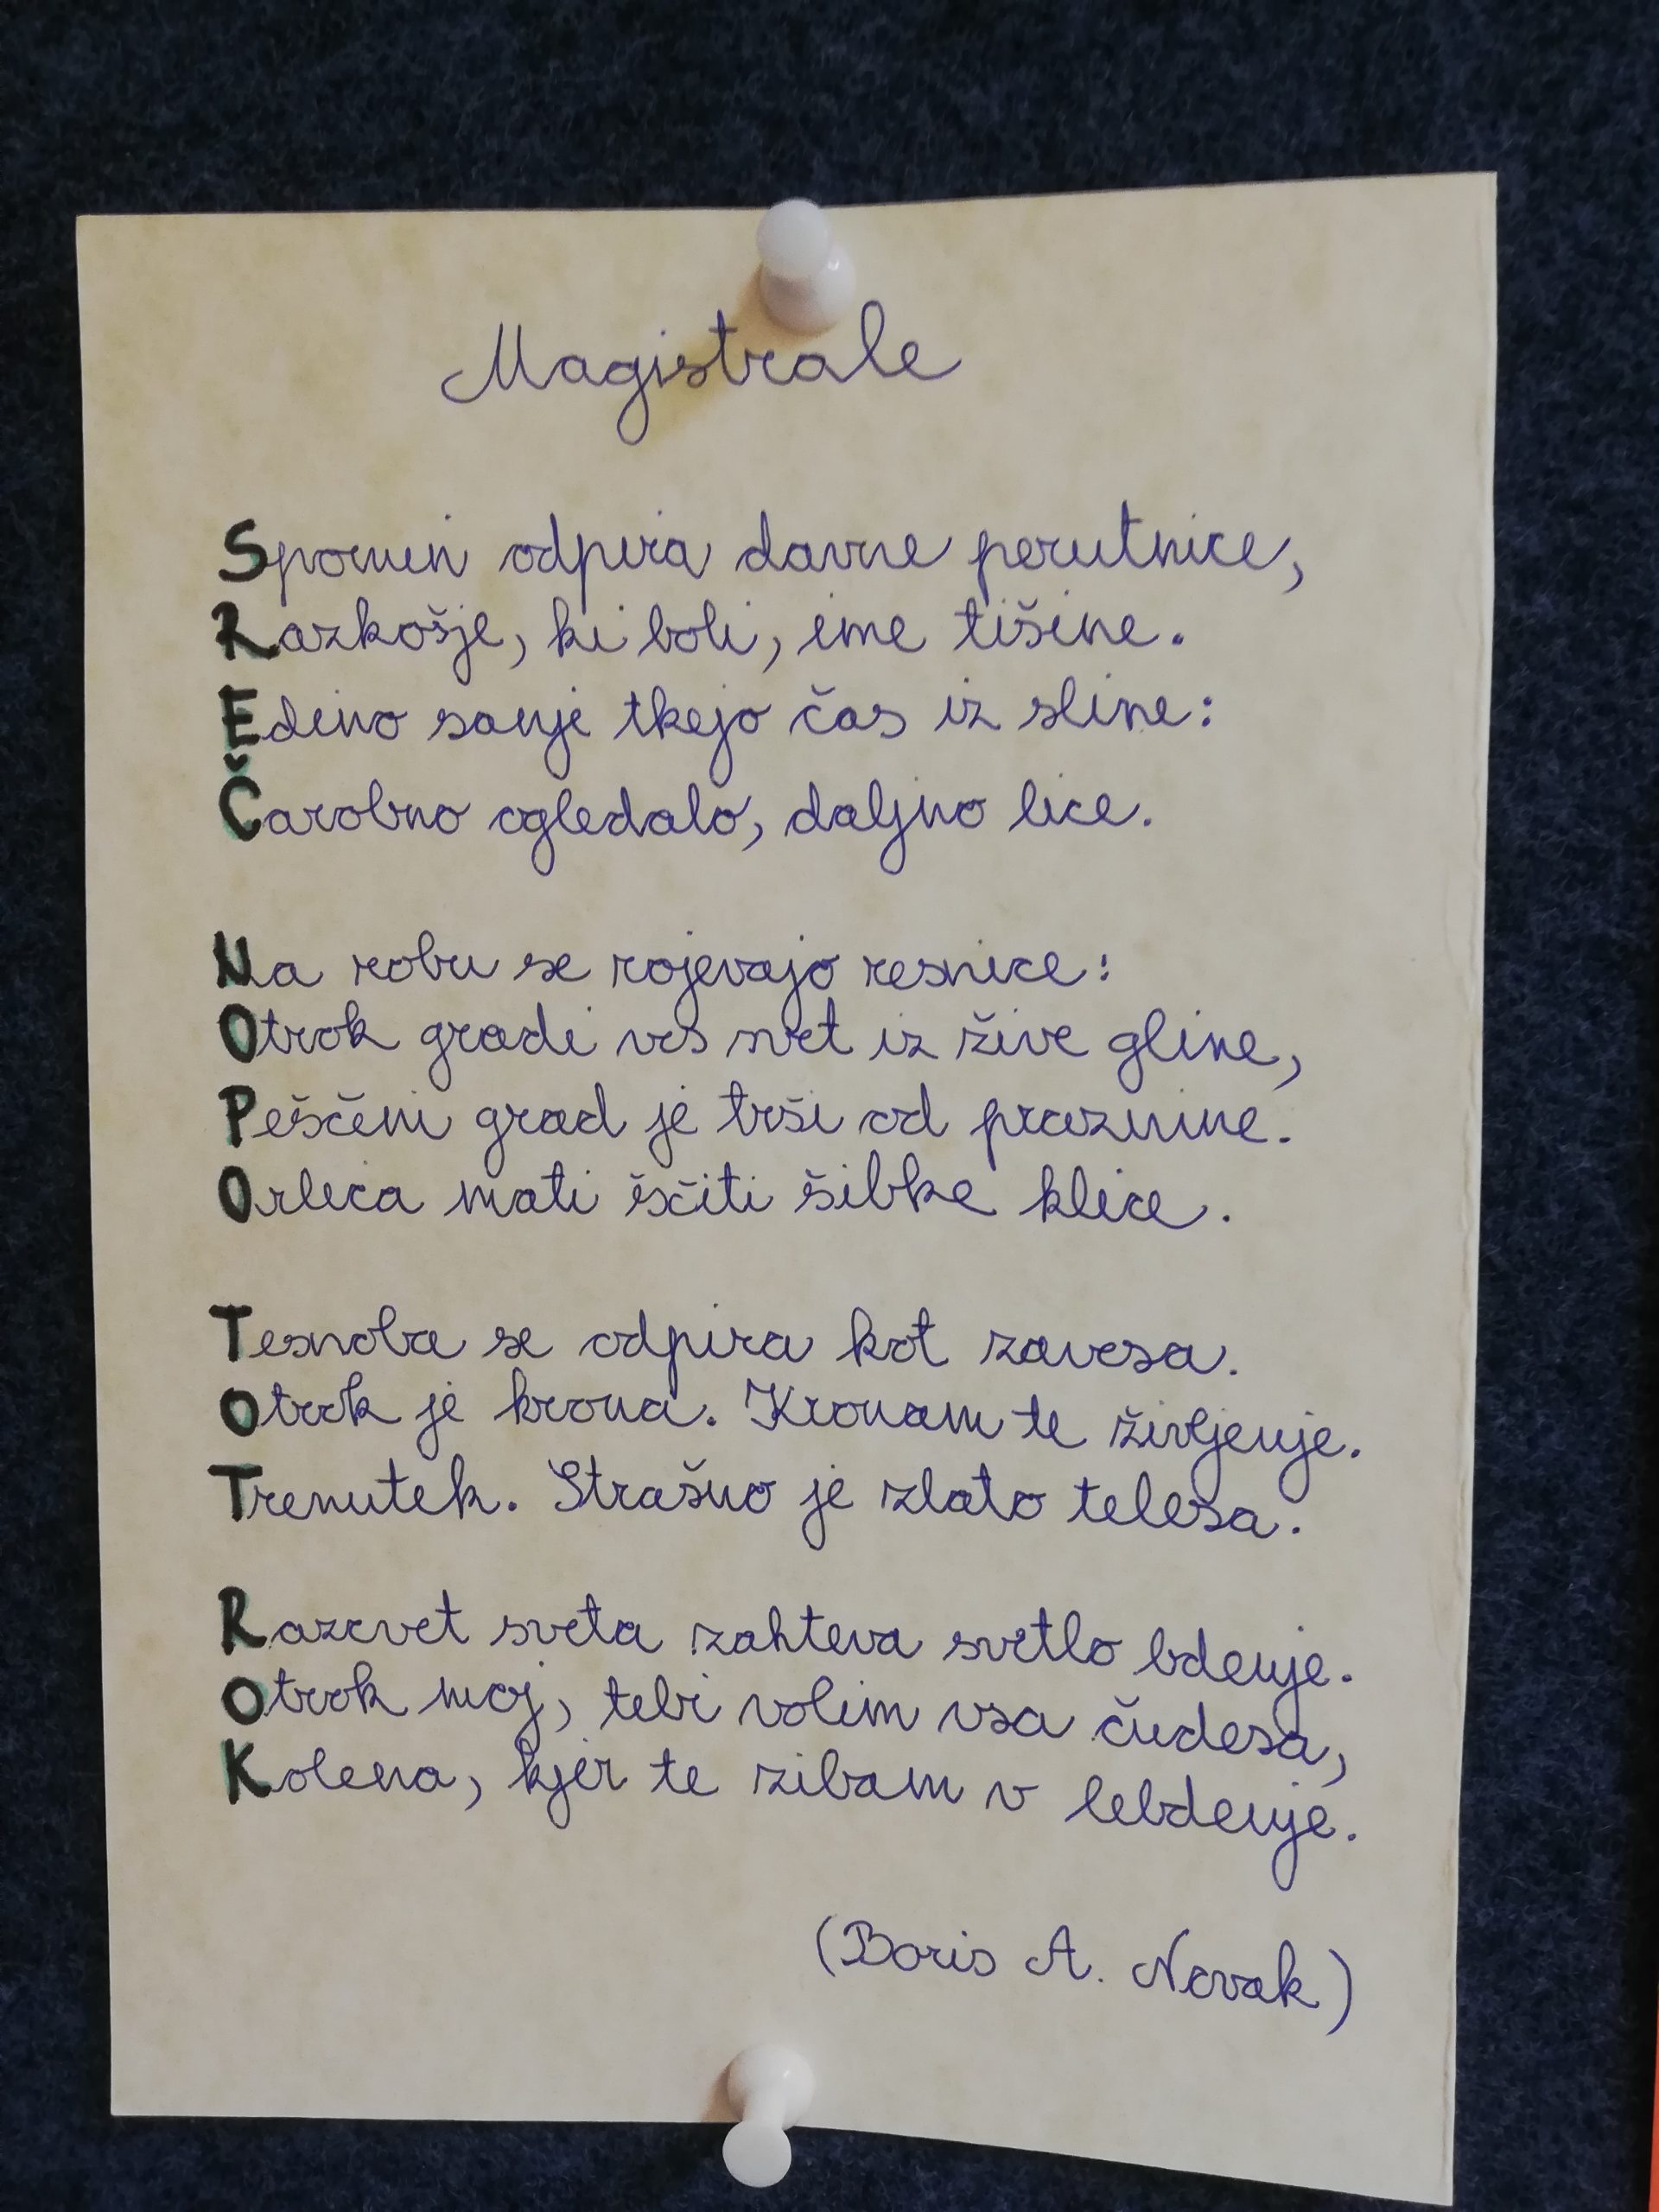 Magistrale
Spomin odpira davne perutnice,
Razkošje, ki boli, ime tišine.
Edino sanje tkejo čas iz sline:
Čarobno ogledalo, daljno lice.
Na robu se rojevajo resnice:
Otrok gradi ves svet iz žive gline,
Peščeni grad je trši od praznine.
Orlica mati ščiti šibke klice.
Tesnoba se odpira kot zavesa.
Otrok je krona. Kronam te življenje.
Trenutek. Strašno je zlato telesa.
Razcvet sveta zahteva svetlo bdenje.
Otrok moj, tebi volim vsa čudesa,
Kolena, kjer te zibam v lebdenje.
(Boris A. Novak)